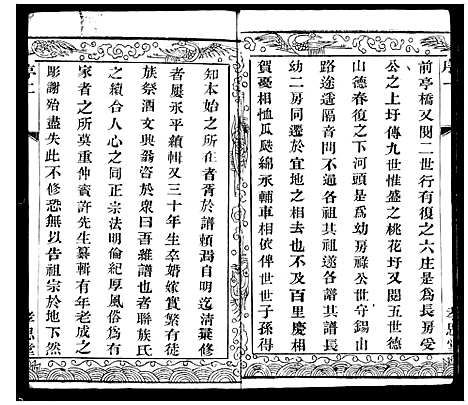 前亭橋又閱二世行有復之六庄是為長房受
公之上圩傳九世惟盛之桃花圩又閱五世德
山德春復之下河頭是為幼房祿公世守錫山
路途遙隔音問罕通各祖其祖遂各譜其譜長
幼二房同遷於宜地之相去也不及百里慶相
賀憂相恤瓜瓞綿永輔車相依俾世世子孫得
孝思堂
知本始之所在者胥於譜賴潤自明迄清葉修
者屢永平續輯又三十年生卒婚嫁實繁有徒
族祭酒文興翁咨於衆曰吾雖譜也者聯族氏
之績合人心之同正宗法明倫紀厚風俗為有
家者之所莫重仲賓許先生纂輯有年老成之
彫謝殆盡失此不修恐無以告祖宗於地下然
序二
孝思堂